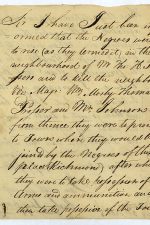 I have just been in
formed that the Negroes were
to rise (as they termed it) in the
neighbourhood of Mr
and to kill the neighbors
viz. Majr Wm Mosby Thomas
Prosser and Mr Johnson
from thence they were to proceed
to Town where they would be
joined by the Negroes of this
place (Richmond) after which
they were to take possession of
Arms and ammunition and
then take possession of the Town